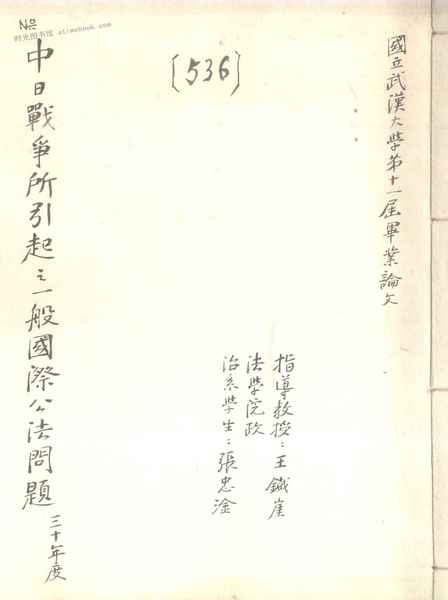 國立武漢大學第十一屆畢業論文
〔536〕
指導教授：王鐵崖
法學院政
治系學生：張忠淦
中日戰爭所引起之一般國際公法問題 三十年度
№
时光图书馆 atimebook.com